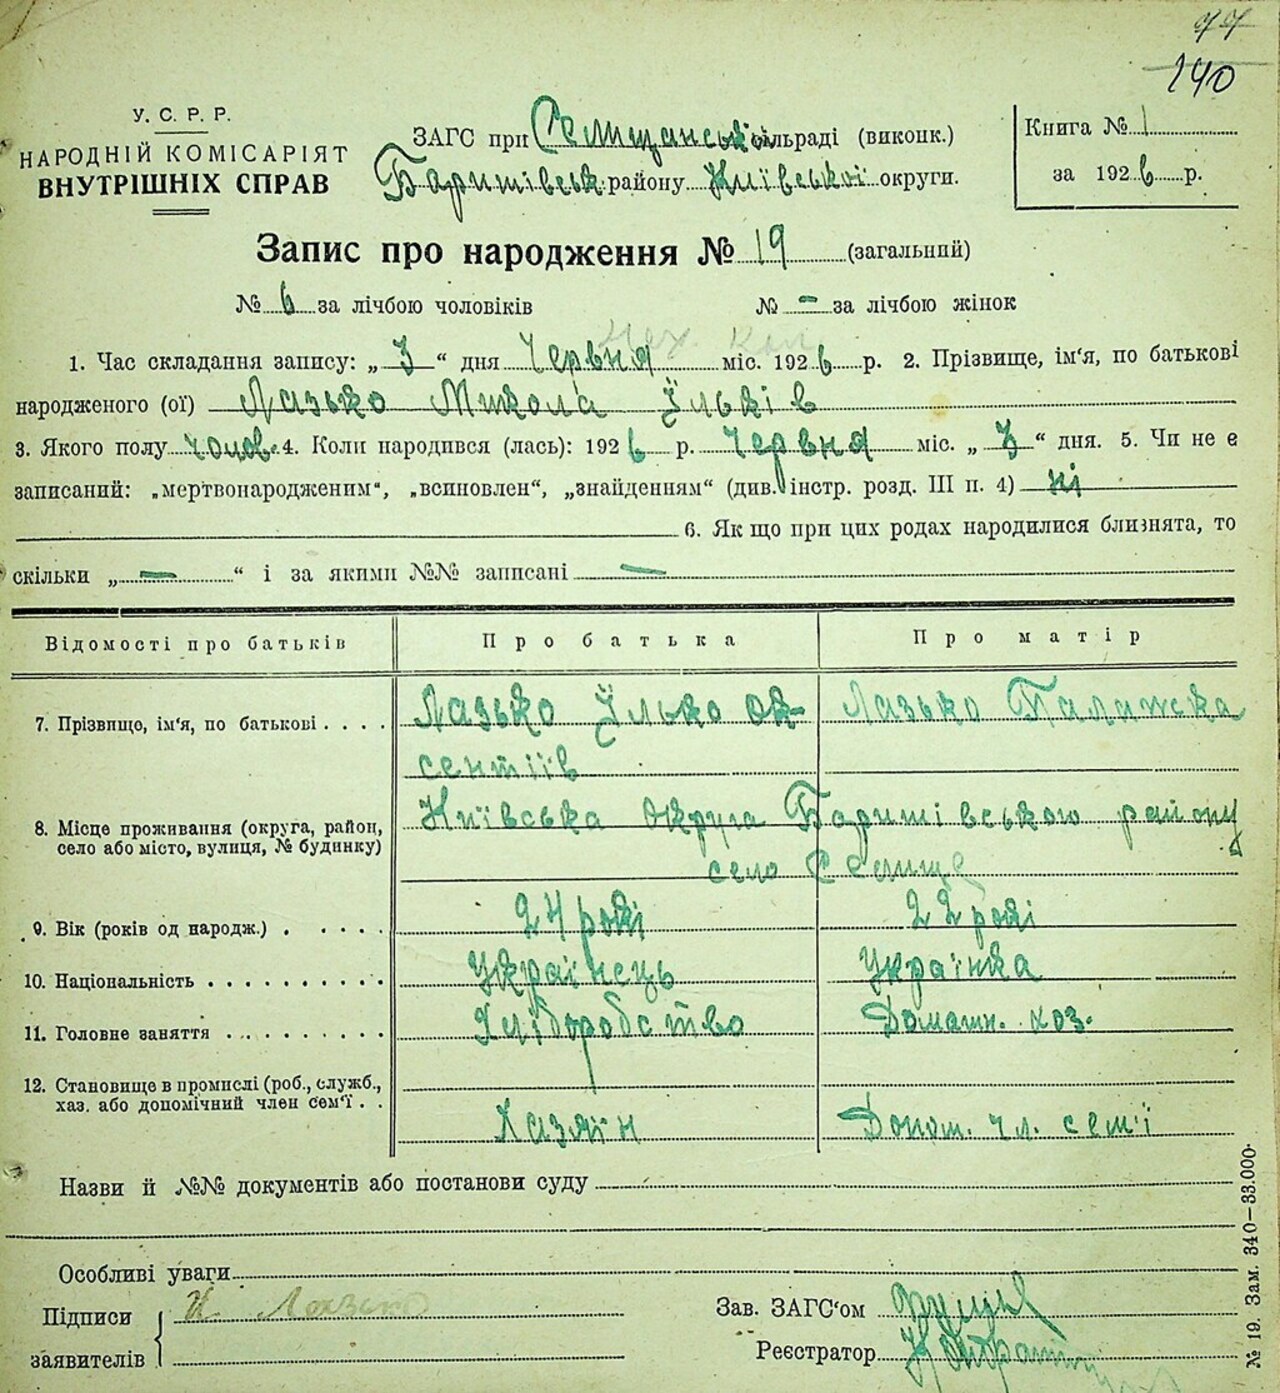 140
У. С. Р. Р.
НАРОДНІЙ КОМІСАРІЯТ
ВНУТРІШНІХ СПРАВ
ЗАГС при Селищанськ. сільраді (виконк.)
Баришівськ. району Київської округи.
Книга № 1
за 1926 р.
Запис про народження № 19 (загальний)
№ 6 за лічбою чоловіків № – за лічбою жінок
1. Час складання запису: „ 3 “ дня Червня міс. 1926 р. 2. Прізвище, ім'я, по батькові
народженого (ої) Лазько Микола Ільків
3. Якого полу чолов. 4. Коли народився (лась): 1926 р. Червня міс. „ 3 “ дня. 5. Чи не є
записаний: „мертвонародженим“, „всиновлен“, „знайденням“ (див. інстр. розд. III п. 4) ні
6. Як що при цих родах народилися близнята, то
скільки „ — “ і за якими №№ записані —
Відомості про батьків Про батька Про матір
7. Прізвище, ім'я, по батькові . . . . Лазько Ілько Ок- Лазько Палажска
сентіїв
8. Місце проживання (округа, район, Київська округа Баришівського району
село або місто, вулиця, № будинку) село Селище
9. Вік (років од народж.) . . . . . 24 рокі 22 рокі
10. Національність . . . . . . . . . . Українець Українка
11. Головне заняття . . . . . . . . . Хліборобство Домашн. хоз.
12. Становище в промислі (роб., служб.,
хаз. або допомічний член сем'ї . . Хазяїн Допом. чл. сем'ї
Назви й №№ документів або постанови суду
Особливі уваги
Підписи И. Лазько
заявителів
Зав. ЗАГС'ом
Реєстратор
№ 19. Зам. 340—33.000.